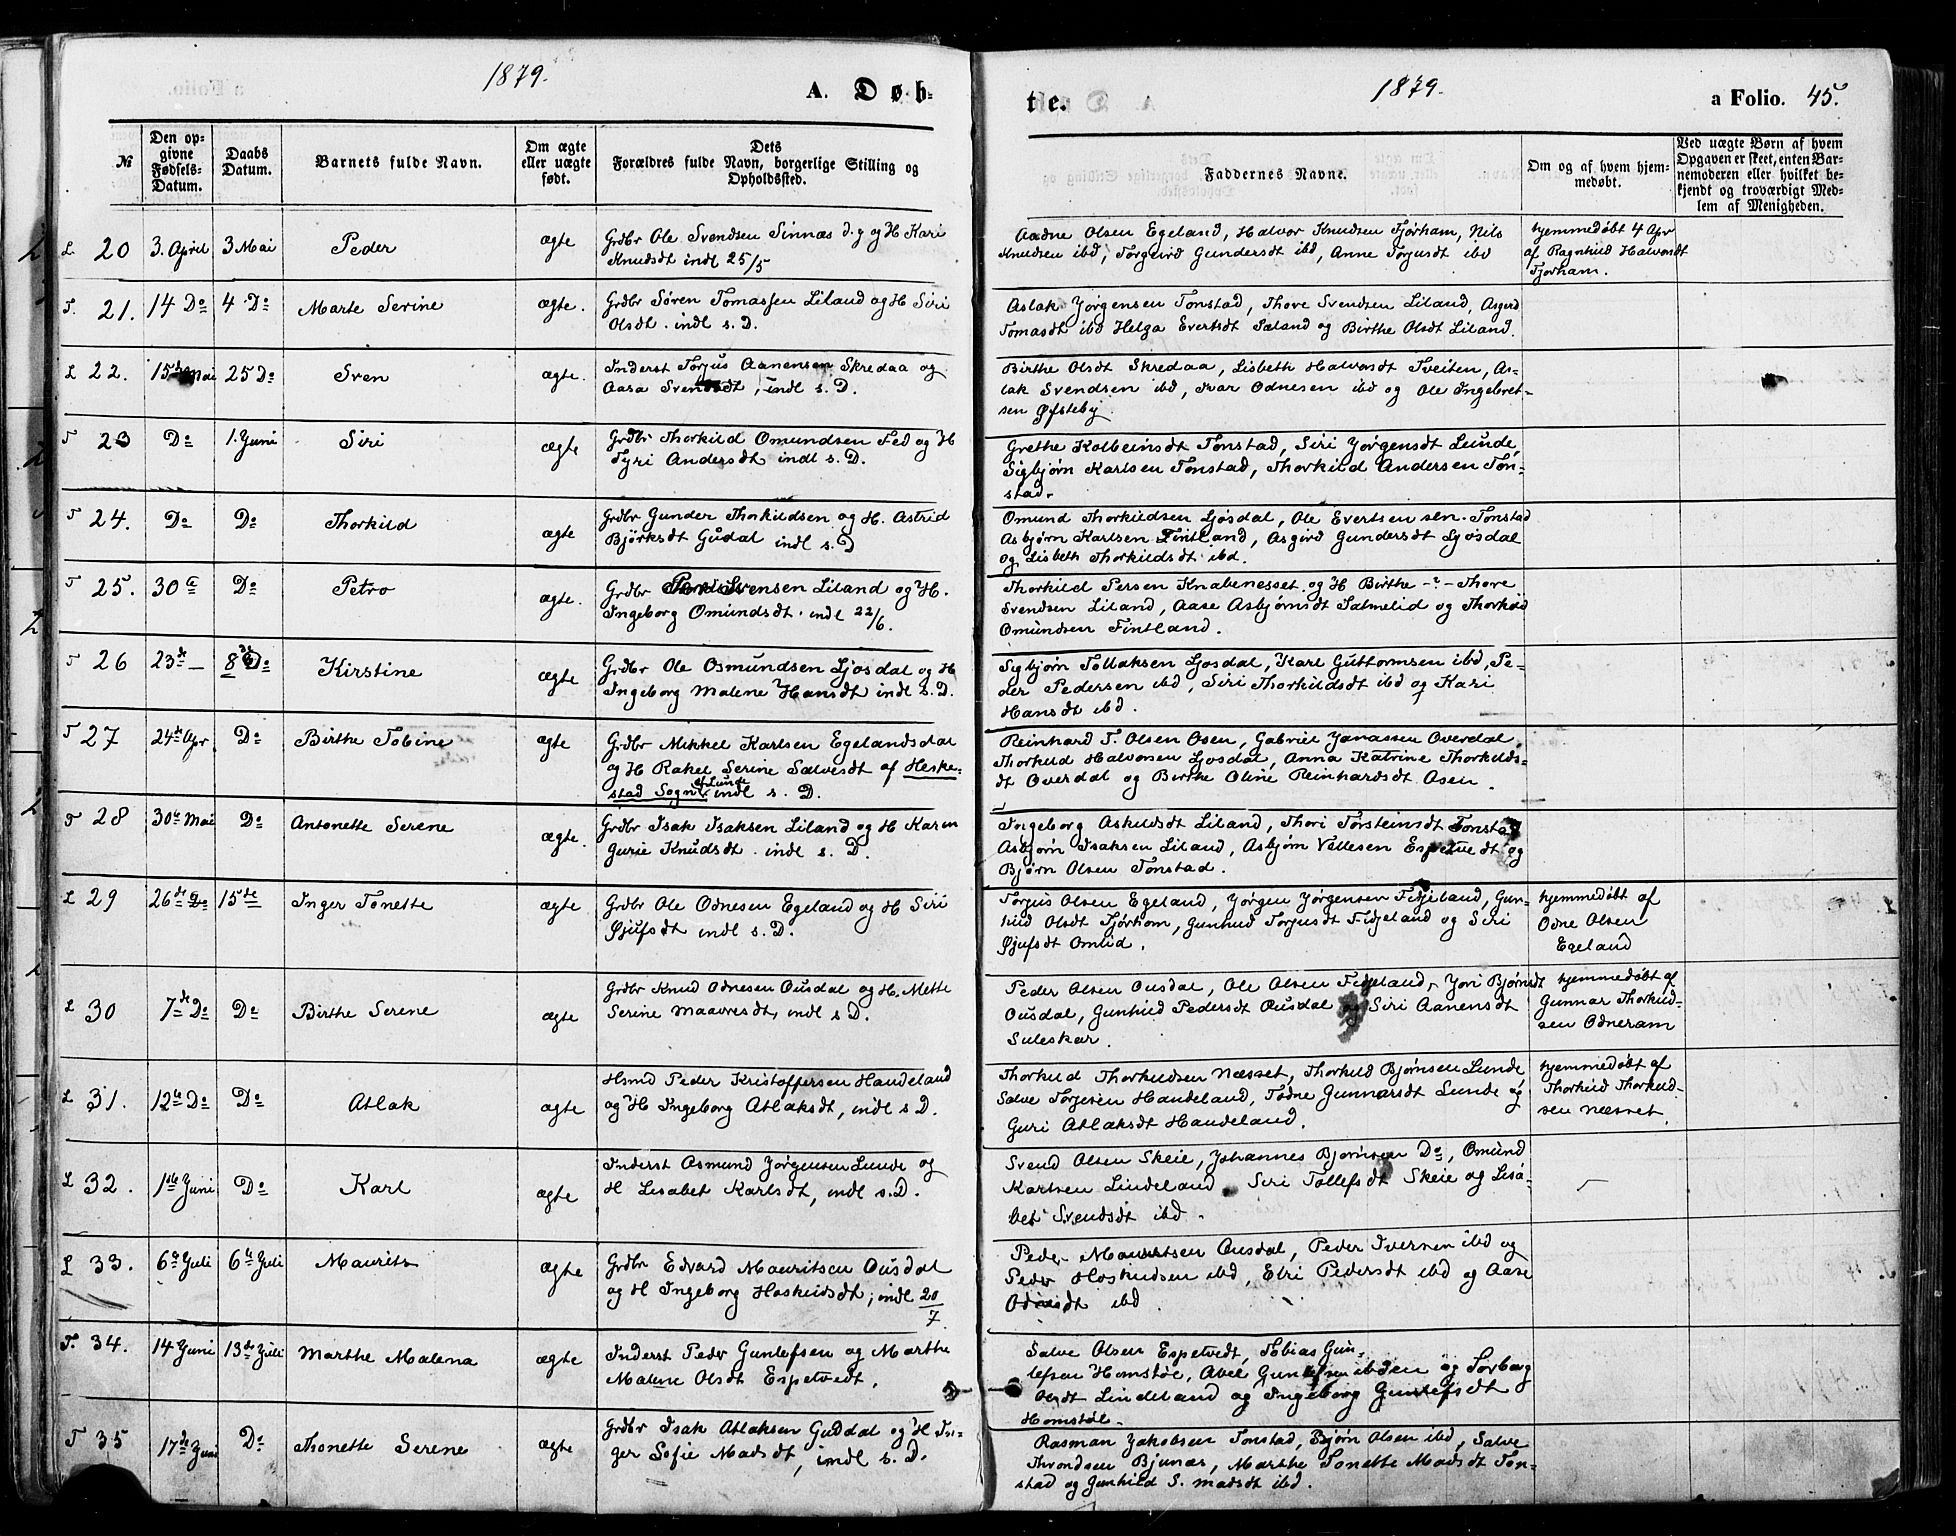 1879.
A. Døb-
№
Den op-
givne
Fødsels-
Datum.
Daabs
Datum.
Barnets fulde Navn.
Om ægte
eller uægte
født.
Dets
Forældres fulde Navn, borgerlige Stilling og
Opholdssted.
L 20 3. April 3 Mai Peder ægte Grdbr Ole Svendsen Sinnæs d.y og H Kari
Knudsdt indl 25/5
T. 21. 14 Do 4 Do Marte Serine ægte. Grdbr Søren Tomassen Liland og H Siri
Olsdt. indl s. D.
L 22. 15de Mai 25 Do Sven ægte. Inderst Torjus Aanensen Skredaa og
Aasa Svendsdt, indl s. D.
T 23 Do 1. Juni Siri ægte Grdbr Thorkild Omundsen Fed og H
Tyri Andersdt indl s. D.
T 24. Do Do Thorkild ægte Grdbr Gunder Thorkildsen og H. Astrid
Björksdt Gudal indl s. D
T 25. 30 Do Petro ægte. Grdbr Svensen Liland og H.
Ingeborg Omundsdt. indl 22/6.
T 26 23de — 8 Do Kirstine ægte Grdbr Ole Osmundsen Ljosdal og H
Ingeborg Malene Hansdt indl s. D.
T 27 24de Apr Do Birthe Tobine ægte Grdbr Mikkel Karlsen Egelandsdal
og H Rakel Serine Salvesdt af Heske-
stad Sogn, af Lunde indl s. D.
T 28 30te Mai Do Antonette Serene ægte. Grdbr Isak Isaksen Liland og H Karen
Gurie Knudsdt. indl s. D.
L 29 26de Do 15de Inger Tonette ægte Grdbr Ole Odnesen Egeland og H Siri
Øjufsdt indl s. D.
L 30 7de Do Do Birthe Serene ægte Grdbr Knud Odnesen Ousdal og H. Mette
Serine Maavresdt, indl s D.
L 31. 12te Do Do Atlak ægte Hsmd Peder Kristoffersen Haudeland
og H Ingeborg Atlaksdt, indl s D.
L 32. 1ste Juni Do Karl ægte Inderst Asmund Jørgensen Lunde og
H Lisabet Karlsdt, indl s. D.
L 33. 6te Juli 6te Juli Maurits ægte Grdbr Edvard Mauritsen Ousdal
og H Ingeborg Hoskuldsdt, indl 20/7
T. 34. 14 Juni 13de Juli Marthe Malena ægte Inderst Peder Gunlefsen og Marthe
Malene Olsdt Espetvedt.
T 35 17de Juni Do Thonette Serene ægte Grdbr Isak Atlaksen Guddal og H In-
ger Sofie Madsdt, indl s. D.
te.
1879.
a Folio. 45.
Faddernes Navne.
Om og af hvem hjem-
medøbt.
Ved uægte Børn af hvem
Opgaven er skeet, enten Bar-
nemoderen eller hvilket be-
kjendt og troværdigt Med-
lem af Menigheden.
Aadne Olsen Egeland, Halvor Knudsen Tjørham, Nils
Knudsen ibd, Torgund Gundersdt ibd, Anne Torjusdt ibd
hjemmedøbt 4 Apr
af Ragnhild Halvorsdt
Tjorham.
Aslak Jörgensen Tonstad, Thore Svendsen Liland, Asgerd
Tomasdt ibd Helga Evertsdt Sæland og Birthe Olsdt Liland.
Birthe Olsdt Skredaa, Lisbeth Halvorsdt Tveiten, As-
lak Svendsen ibd, Ivar Odnesen ibd og Ole Ingebret-
sen Øfsteby.
Grethe Kolbeinsdt Tonstad, Siri Jörgensdt Lunde,
Sigbjørn Karlsen Tonstad, Thorkild Andersen Ton-
stad.
Omund Thorkildsen Ljosdal, Ole Evertsen sen. Tonstad
Asbjørn Karlsen Fintland, Asgird Gundersdt Ljosdal
og Lisbeth Thorkildsdt ibd.
Thorkild Persen Knabenesset og H Birthe -"- Thore
Svendsen Liland, Aase Asbjørnsdt Salmelid og Thorkild
Omundsen Fintland.
Sigbjørn Tollaksen Ljosdal, Karl Guttormsen ibd, Pe-
der Pedersen ibd, Siri Thorkildsdt ibd og Kari
Hansdt ibd.
Reinhard T. Olsen Osen, Gabriel Janassen Overdal,
Thorkild Halvorsen Ljosdal, Anna Katrine Thorkilds-
dt Overdal og Birthe Oline Reinhardsdt Osen.
Ingeborg Askildsdt Liland, Thori Torsteinsdt Tonstad
Asbjørn Isaksen Liland, Asbjørn Vallesen Espetvedt og
Bjørn Olsen Tonstad.
Torjus Olsen Egeland, Jørgen Jørgensen Fidjeland, Gun-
hild Olsdt Tjørhom, Gunhild Torjusdt Fidjeland og Siri
Øjufsdt Omlid.
hjemmedøbt af
Odne Olsen
Egeland
Peder Olsen Ousdal, Ole Olsen Fidjeland, Jori Bjørnsdt
Ousdal, Gunhild Pedersdt Ousdal og Siri Aanensdt
Suleskar.
hjemmedøbt af
Gunnar Thorkild-
sen Odneram
Thorkild Thorkildsen Næsset, Thorkild Bjørnsen Lunde
Salve Torjesen Haudeland, Todne Gunnarsdt Lunde og
Guri Atlaksdt Haudeland.
hjemmedøbt af
Thorkild Thorkild-
sen Næsset.
Svend Olsen Skeie, Johannes Bjørnsen Do, Omund
Karlsen Lindeland Siri Tollefsdt Skeie og Lisa-
bet Svendsdt ibd.
Peder Mauritsen Ousdal, Peder Iversen ibd og
Peder Hoskuldsen ibd, Elri Pedersdt ibd og Aase
Odnesdt ibd.
Salve Olsen Espetvedt, Tobias Gun-
lefsen Homstøl, Abel Gunlefsen ibden og Torborg
Olsdt Lindeland og Ingeborg Gunlefsdt
Homstøl.
Rasman Jakobsen Tonstad, Bjørn Olsen ibd, Salve
Throndsen Bjunæs, Marthe Tonette Madsdt Ton-
stad og Gunhild S. Madsdt ibd.